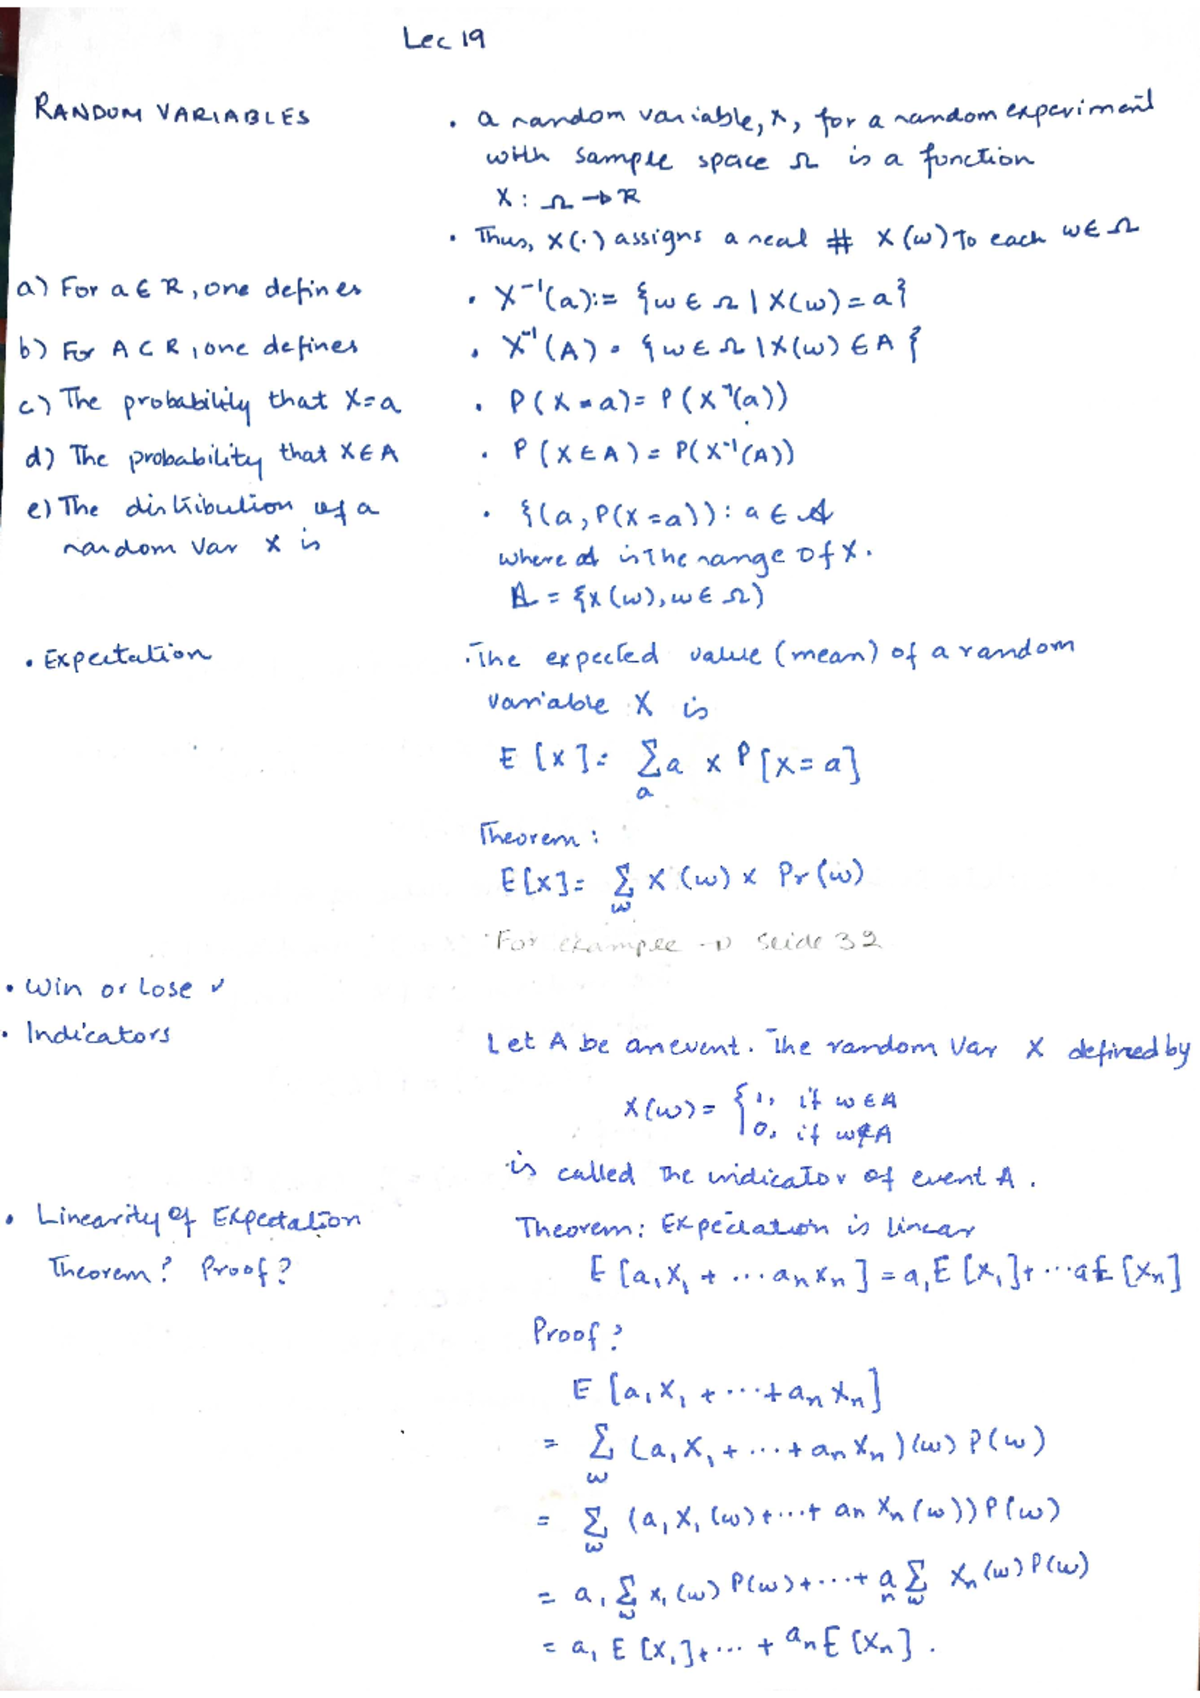 Lec 19
RANDOM VARIABLES
• a random variable, X, for a random experiment
with sample space Ω is a function
X : Ω → R
• Thus, X(·) assigns a real # X(ω) To each ω ∈ Ω
a) For a ∈ R, one defines
• X⁻¹(a) := {ω ∈ Ω | X(ω) = a}
b) For A ⊂ R, one defines
• X⁻¹(A) = {ω ∈ Ω | X(ω) ∈ A}
c) The probability that X=a
• P(X=a) = P(X⁻¹(a))
d) The probability that X ∈ A
• P(X ∈ A) = P(X⁻¹(A))
e) The distribution of a
random var X is
• {(a, P(X=a)) : a ∈ A
where A is The range of X.
A = {X(ω), ω ∈ Ω)
• Expectation
• The expected value (mean) of a random
variable X is
E[X] = Σ a × P[X=a]
a
Theorem:
E[X] = Σ X(ω) × Pr(ω)
ω
• For example → Slide 32
• Win or Lose ✓
• Indicators
Let A be an event. The random Var X defined by
X(ω) = { 1, if ω ∈ A
0, if ω ∉ A
is called The indicator of event A.
• Linearity of Expectation
Theorem? Proof?
Theorem: Expectation is linear
E[a₁X₁ + ... aₙXₙ] = a₁E[X₁] + ... aE[Xₙ]
Proof?
E[a₁X₁ + ... + aₙXₙ]
= Σ (a₁X₁ + ... + aₙXₙ)(ω) P(ω)
ω
= Σ (a₁X₁(ω) + ... + aₙXₙ(ω)) P(ω)
ω
= a₁ Σ X₁(ω) P(ω) + ... + aₙ Σ Xₙ(ω) P(ω)
ω ω
= a₁ E[X₁] + ... + aₙE[Xₙ].